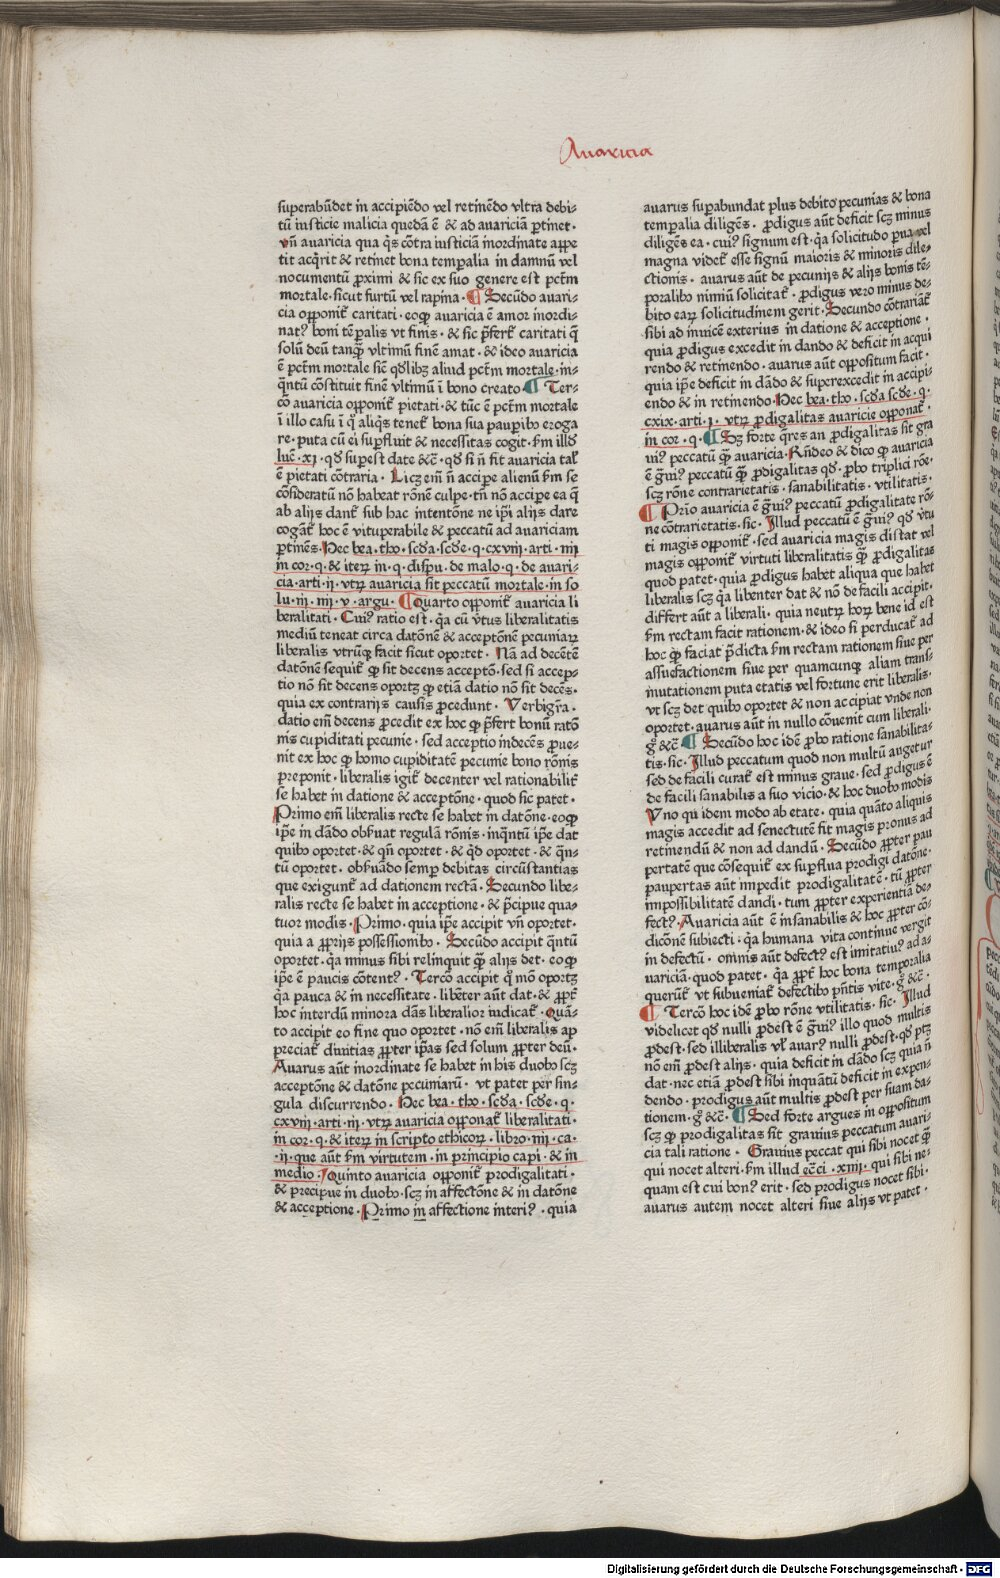 Auaricia
superabūdet in accipiēdo vel retinēdo vltra debi⸗
tū iusticie malicia quedā ē & ad auariciā ꝑtinet·
vñ auaricia qua q̇s cōtra iusticiā inordinate appe
tit acq̇rit & retinet bona tempalia in damnū vel
nocumentū ꝓximi & sic ex suo genere est pctm̄
mortale·sicut furtū vel rapina· ¶ Secūdo auari⸗
cia opponit᷑ caritati·eoꝙ auaricia ē amor inordi⸗
natꝰ boni tēpalis vt finis· & sic p̄fert᷑ caritati q̄
solū deū tanꝙ̄ vltimū finē amat·& ideo auaricia
ē pctm̄ mortale siē qdlibꝫ aliud pctm̄ mortale·in⸗
q̄ntū cōstituit finē vltimū ī bono creato· ¶ Ter⸗
cō auaricia opponit᷑ pietati·& tūc ē pctm̄ mortale
ī illo casu ī q̇ aliq̇s tenet᷑ bona sua paupibꝰ eroga
re·puta cū ei supfluit & necessitas cogit·ẜm illd̄
luč·xj·qd̄ supest date &č·qd̄ si ñ fit auaricia tal᷑
ē pietati cōtraria· Licꝫ em̄ ñ accipe alienū ẜm se
cōsideratū nō habeat rōnē culpe·tñ nō accipe ea q̄
ab alijs dant᷑ sub hac intentōne ne ip̄i alijs dare
cogāt᷑ hoc ē vituperabile & peccatū ad auariciam
ꝑtinēs·Hec bea·tho·scd̄a·scd̄e·q·cxviij·arti·iiij
in cor·q·& iteꝝ in·q·dispu·de malo·q·de auari⸗
cia·arti·ij·vtꝝ auaricia sit peccatū mortale·in so
lu·iij·iiij·v·argu· ¶Quarto opponit᷑ auaricia li
beralitati·Cuiꝰ ratio est·q̇a cū v̄tus liberalitatis
mediū teneat circa datōnē & acceptōnē pecuniaꝝ
liberalis vtrūqꝫ facit sicut oportet· Nā ad decētē
datōnē sequit᷑ ꝙ sit decens acceptō·sed si accep⸗
tio nō sit decens oportꝫ ꝙ etiā datio nō sit decēs·
quia ex contrarijs causis ꝓcedunt· Verbigr̄a·
datio em̄ decens ꝓcedit ex hoc ꝙ p̄fert bonū ratō
nis cupiditati pecunie·sed acceptio indecēs ꝓue⸗
nit ex hoc ꝙ homo cupiditatē pecunie bono rōnis
p̄reponit·liberalis igit᷑ decenter vel rationabilit᷑
se habet in datione & acceptōne·quod sic patet·
Primo em̄ liberalis recte se habet in datōne·eoꝙ
ip̄e in dādo obẜuat regulā rōnis·inq̄ntū ip̄e dat
quibꝰ oportet·& qñ oportet·& qd̄ oportet·& q̄n⸗
tū oportet·obẜuādo semp debitas circūstantias
que exigunt᷑ ad dationem rectā·Secundo libe⸗
ralis recte se habet in acceptione·& p̄cipue qua⸗
tuor modis·Primo·quia ip̄e accipit vñ oportet·
quia a ꝓprijs possessionibꝰ· Secūdo accipit q̄ntū
oportet·q̇a minus sibi relinquit ꝙ̄ alijs det·eoꝙ
ip̄e ē paucis cōtentꝰ· Tercō accipit q̇ mō oportꝫ
q̇a pauca & in necessitate·libēter aūt dat·& ꝓpt᷑
hoc interdū minora dās liberalior iudicat᷑·Quā⸗
to accipit eo fine quo oportet·nō em̄ liberalis ap
preciat᷑ diuitias ꝓpter ip̄as sed solum ꝓpter deū·
Auarus aūt inordinate se habet in his duobꝰ scꝫ
acceptōne & datōne pecuniarū· vt patet per sin⸗
gula discurrendo· Hec bea·tho·scd̄a·scd̄e·q·
cxviij·arti·iij·vtꝝ auaricia opponat᷑ liberalitati·
in cor·q·& iteꝝ in scripto ethicoꝝ·libro·iiij·ca·
·ij·que aūt ẜm virtutem·in principio capi·& in
medio·Quinto auaricia opponit᷑ prodigalitati·
& precipue in duobꝰ·scꝫ in affectōne & in datōne
& acceptione·Primo in affectione interiꝰ·quia
auarus supabundat plus debito pecunias & bona
tempalia diligēs· ꝓdigus aūt deficit scꝫ minus
diligēs ea·cuiꝰ signum est·q̇a solicitudo ꝑua vel
magna videt᷑ esse signū maioris & minoris dile⸗
ctionis·auarus aūt de pecunijs & alijs bonis tē⸗
poralibꝰ nimiū solicitat᷑·ꝓdigus vero minus de⸗
bito eaꝝ solicitudinem gerit·Secundo cōtrariāt᷑
sibi ad inuicē exterius in datione & acceptione·
quia ꝓdigus excedit in dando & deficit in acqui
rendo & retinendo·auarus aūt oppositum facit·
quia ip̄e deficit in dādo & superexcedit in accipi⸗
endo & in retinendo·Hec bea·tho·scd̄a scd̄e·q·
cxix·arti·j·vtꝝ ꝓdigalitas auaricie opponat᷑·
in cor·q· ¶ Sꝫ forte q̄res an ꝓdigalitas sit gra
uiꝰ peccatū ꝙ̄ auaricia·Rñdeo & dico ꝙ auaricia
ē g̈uiꝰ peccatū ꝙ̄ ꝓdigalitas qd̄·ꝓbo triplici rōe·
scꝫ rōne contrarietatis·sanabilitatis·vtilitatis·
¶ Prīo auaricia ē g̈uiꝰ peccatū ꝓdigalitate rō⸗
ne cōtrarietatis·sic·Illud peccatū ē g̈uiꝰ qd̄ v̄tu
ti magis opponit᷑·sed auaricia magis distat vel
magis opponit᷑ virtuti liberalitatis ꝙ̄ ꝓdigalitas
quod patet·quia ꝓdigus habet aliqua que habet
liberalis scꝫ q̇a libenter dat & nō de facili accipit·
differt aūt a liberali·quia neutrꝫ hoꝝ bene id est
ẜm rectam facit rationem·& ideo si perducat᷑ ad
hoc ꝙ faciat p̄dicta ẜm rectam rationem siue per
assuefactionem siue per quamcunqꝫ aliam trans⸗
mutationem puta etatis vel fortune erit liberalis·
vt scꝫ det quibꝰ oportet & non accipiat vnde non
oportet·auarus aūt in nullo cōuenit cum liberali·
g̊ &č ¶ Secūdo hoc idē ꝓbo ratione sanabilita⸗
tis·sic·Illud peccatum quod non multū augetur
sed de facili curat᷑ est minus graue·sed ꝓdigus ē
de facili sanabilis a suo vicio·& hoc duobꝰ modis
Vno quidem modo ab etate·quia quāto aliquis
magis accedit ad senectutē fit magis pronus ad
retinendū & non ad dandū·Secūdo ꝓpter pau
pertatē que cōsequit᷑ ex supflua prodigi datōne·
paupertas aūt impedit prodigalitatē·tū ꝓpter
impossibilitatē dandi·tum ꝓpter experientiā de⸗
fectꝰ·Auaricia aūt ē insanabilis & hoc ꝓpter cō⸗
dicōnē subiecti·q̇a humana vita continue vergit
in defectū· omnis aūt defectꝰ est imitatiuꝰ ad a⸗
uariciā·quod patet·q̇a ꝓpt᷑ hoc bona temporalia
querūt᷑ vt subueniat᷑ defectibꝰ pñtis vite·g̊ &č·
¶ Tercō hoc idē ꝓbo rōne vtilitatis·sic·Illud
videlicet qd̄ nulli ꝓdest ē g̈uiꝰ illo quod multis
ꝓdest·sed illiberalis vl᷑ auarꝰ nulli ꝓdest·qd̄ ptꝫ
nō em̄ ꝓdest alijs·quia deficit in dādo scꝫ quia ñ
dat·nec etiā ꝓdest sibi inquātū deficit in expen⸗
dendo·prodigus aūt multis ꝓdest per suam da⸗
tionem·g̊ &č· ¶Sed forte argues in oppositum
scꝫ ꝙ prodigalitas sit grauius peccatum auari⸗
cia tali ratione· Grauius peccat qui sibi nocet ꝙ̄
qui nocet alteri·ẜm illud eč̄ci·xiiij·qui sibi ne⸗
quam est cui bonꝰ erit·sed prodigus nocet sibi·
auarus autem nocet alteri siue alijs vt patet·
Digitalisierung gefördert durch die Deutsche Forschungsgemeinschaft - DFG